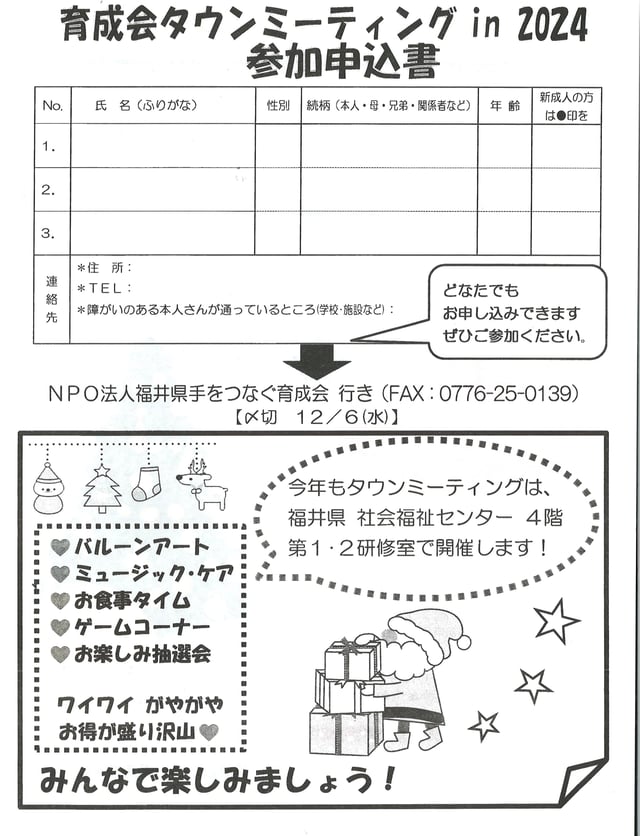 育成会タウンミーティング in 2024
参加申込書
No. 氏 名（ふりがな） 性別 続柄（本人・母・兄弟・関係者など） 年 齢 新成人の方は●印を
1.
2.
3.
連絡先
＊住 所：
＊ＴＥＬ：
＊障がいのある本人さんが通っているところ(学校・施設など)：
どなたでも
お申し込みできます
ぜひご参加ください。
ＮＰＯ法人福井県手をつなぐ育成会 行き（FAX：0776-25-0139）
【〆切 １２／６(水)】
今年もタウンミーティングは、
福井県 社会福祉センター ４階
第１・２研修室で開催します！
♥バルーンアート
♥ミュージック・ケア
♥お食事タイム
♥ゲームコーナー
♥お楽しみ抽選会
ワイワイ がやがや
お得が盛り沢山♥
みんなで楽しみましょう！